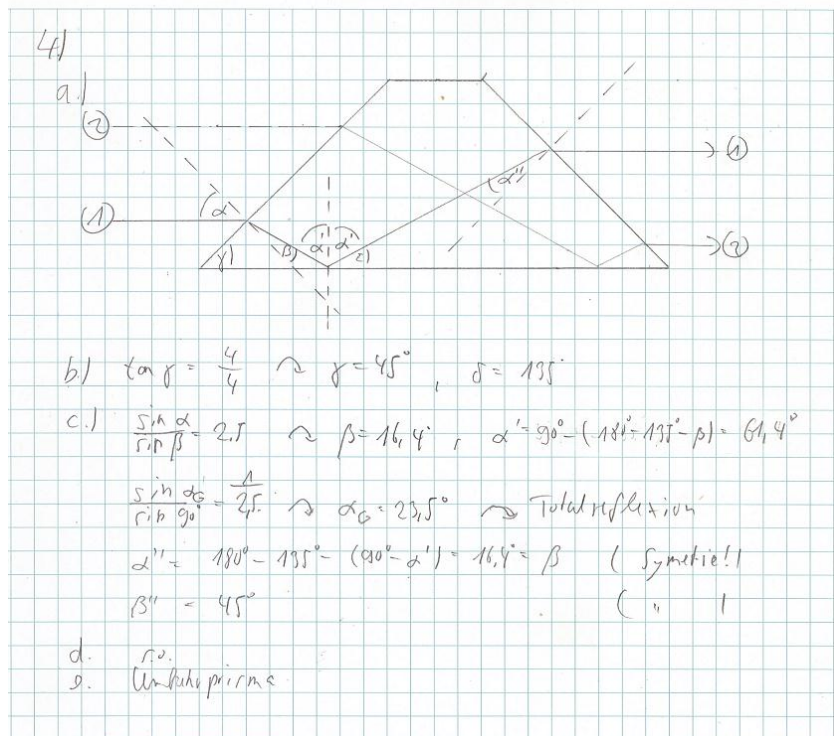 4.)
a.)
② 
①
① α α'' 
α' α' ε)
γ) β)
②
b.) tan γ = 4/4 ↷ γ = 45° , δ = 135°
c.) sin α / sin β = 2,5 ↷ β = 16,4° , α' = 90° - (180° - 135° - β) = 61,4°
sin α_G / sin 90° = 1/2,5 ↷ α_G = 23,5° ↷ Totalreflexion
α'' = 180° - 135° - (90° - α') = 16,4° = β ( Symetrie! )
β'' = 45° ( " )
d. s.o.
e. Umkehrprisma